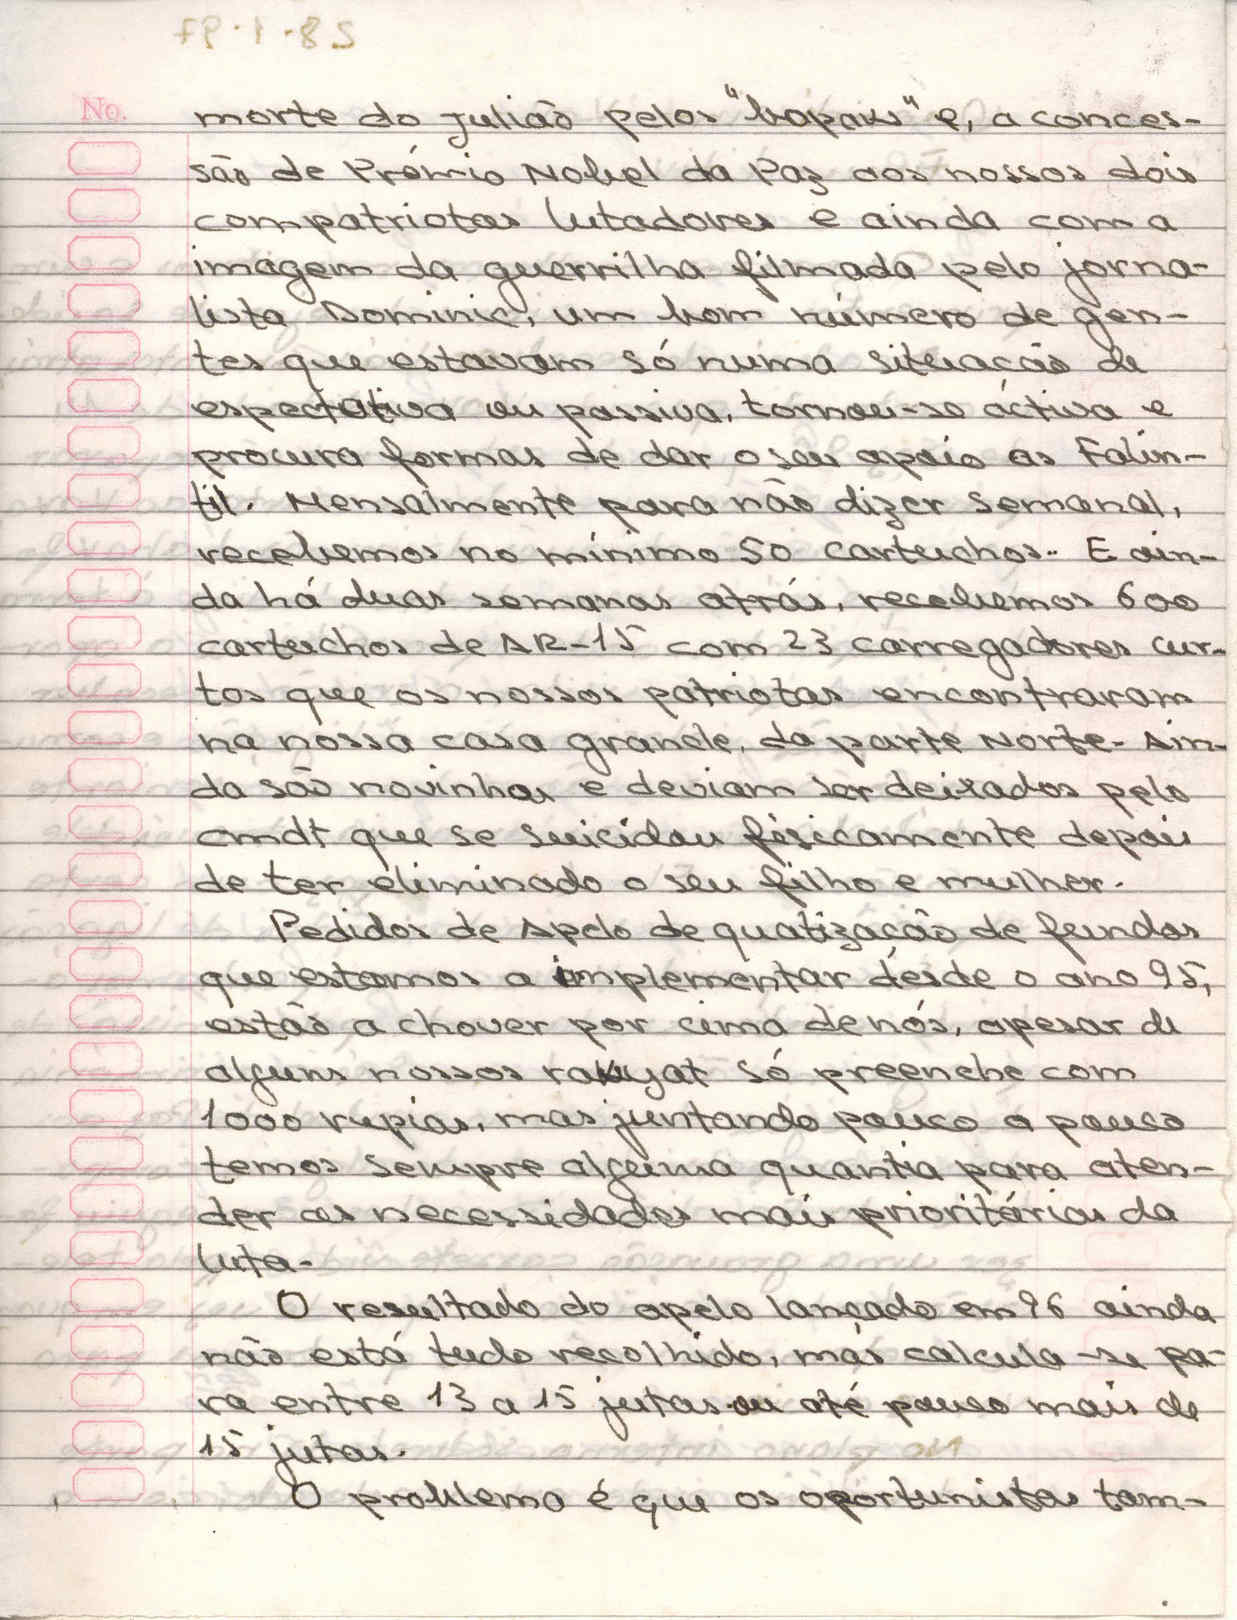 No.
morte do Julião pelos "bapaks" e, a conces-
são de Prémio Nobel da Paz aos nossos dois
compatriotas lutadores e ainda com a
imagem da guerrilha filmada pelo jorna-
lista Dominic, um bom número de gen-
tes que estavam só numa situação de
espectativa ou passiva, tornou-se áctiva e
procura formas de dar o seu apoio as Falin-
til. Mensalmente para não dizer semanal,
recebemos no mínimo 50 cartuchos.. E ain-
da há duas semanas atrás, recebemos 600
cartuchos de AR-15 com 23 carregadores cur-
tos que os nossos patriotas encontraram
na nossa casa grande, da parte Norte. Ain-
da são novinhas e deviam ser deixados pelo
cmdt que se suicidou fisicamente depois
de ter eliminado o seu filho e mulher.
Pedidos de Apelo de quatização de fundos
que estamos a implementar désde o ano 95,
estão a chover por cima de nós, apesar de
alguns nossos rakyat só preenche com
1000 rupias, mas juntando pouco a pouco
temos sempre alguma quantia para aten-
der as necessidades mais prioritárias da
luta.
O resultado do apelo lançado em 96 ainda
não está tudo recolhido, más calcula-se pa-
ra entre 13 a 15 jutas ou até pouco mais de
15 jutas.
O problema é que os oportunistas tam-